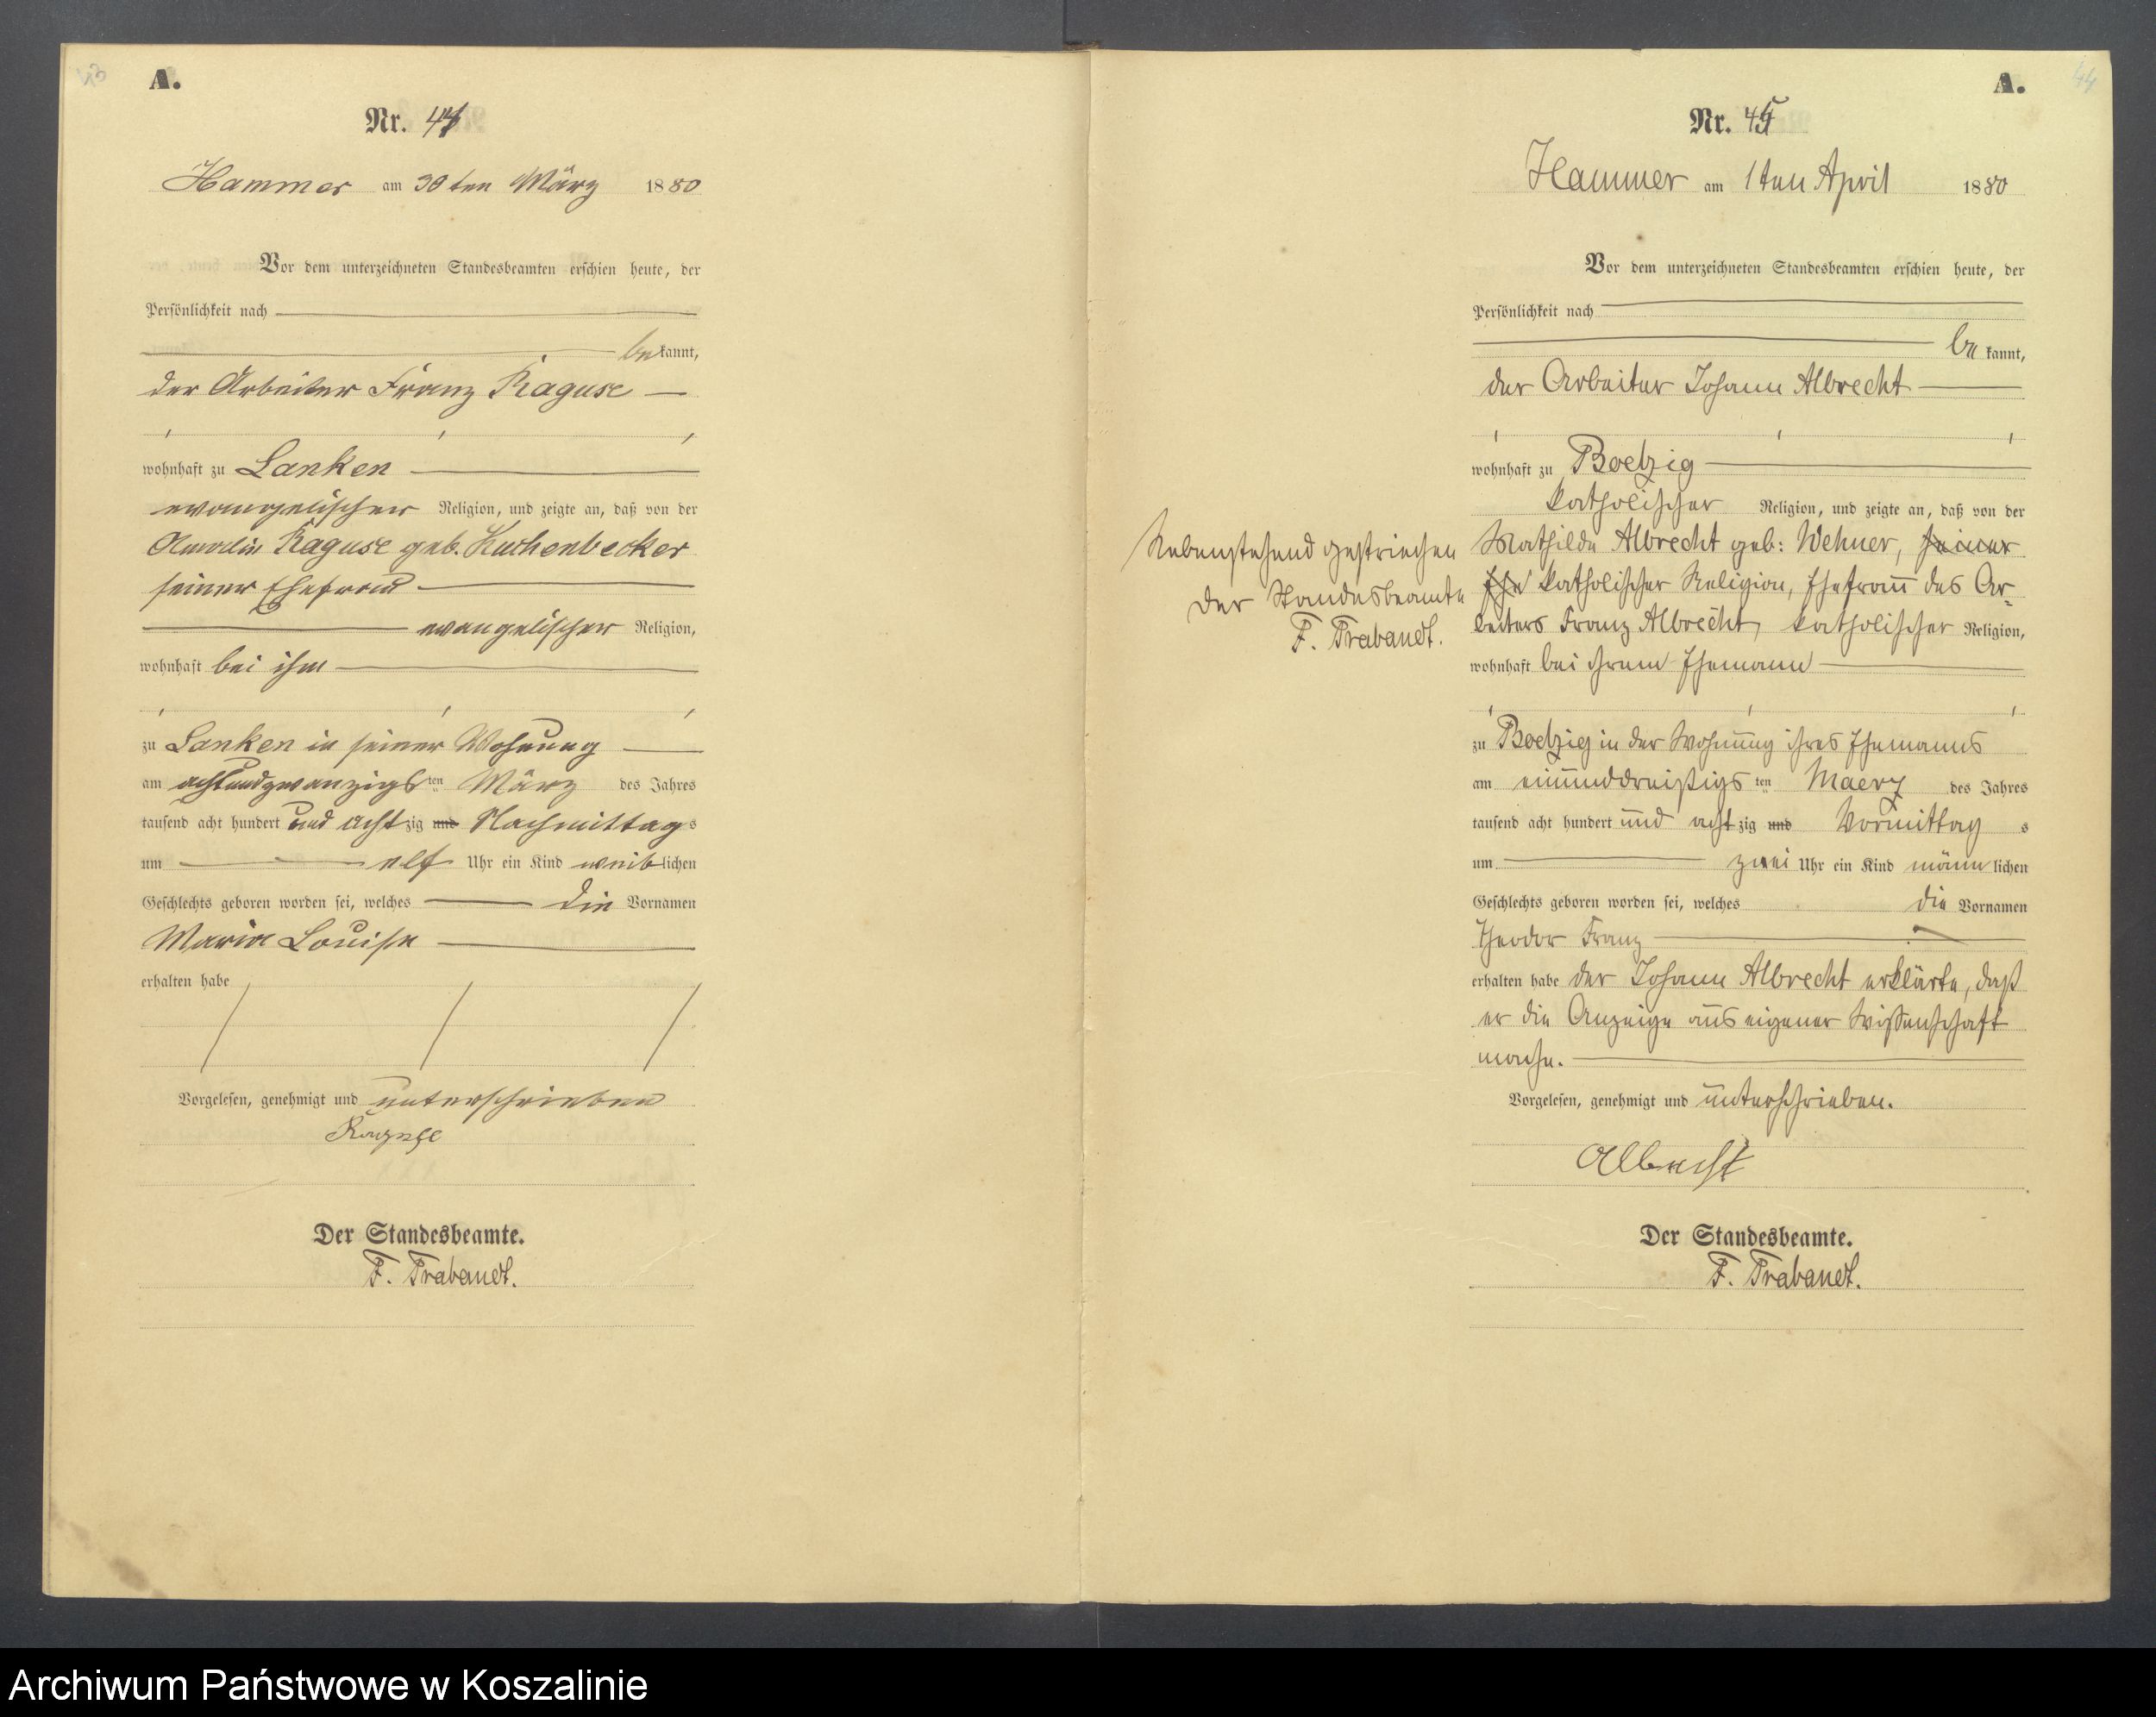 43
A.
Nr. 44
Hammer am 30ten März 1880
Vor dem unterzeichneten Standesbeamten erschien heute, der
Persönlichkeit nach
bekannt,
der Arbeiter Franz Raguse
wohnhaft zu Lanken
evangelischer Religion, und zeigte an, daß von der
Raguse geb. Kuchenbecker
seiner Ehefrau
evangelischer Religion,
wohnhaft bei ihm
zu Lanken in seiner Wohnung
am achtundzwanzigsten März des Jahres
tausend acht hundert und achtzig und Nachmittags
um elf Uhr ein Kind weiblichen
Geschlechts geboren worden sei, welches die Vornamen
Maria Louise
erhalten habe
Vorgelesen, genehmigt und unterschrieben
Raguse
Der Standesbeamte.
F. Trabandt.
A.
44
Nr. 45
Hammer am 1ten April 1880
Vor dem unterzeichneten Standesbeamten erschien heute, der
Persönlichkeit nach
bekannt,
der Arbeiter Johann Albrecht
wohnhaft zu Boetzig
katholischer Religion, und zeigte an, daß von der
Mathilde Albrecht geb: Wehner, seiner
Ehe katholischer Religion, Ehefrau des Ar-
beiters Franz Albrecht, katholischer Religion,
wohnhaft bei ihrem Ehemann
zu Boetzig in der Wohnung ihres Ehemanns
am einunddreißigsten Maerz des Jahres
tausend acht hundert und achtzig und Vormittags
um zwei Uhr ein Kind männlichen
Geschlechts geboren worden sei, welches die Vornamen
Theodor Franz
erhalten habe der Johann Albrecht erklärte, daß
er die Anzeige aus eigener Wissenschaft
mache.
Vorgelesen, genehmigt und unterschrieben.
Albrecht
Der Standesbeamte.
F. Trabandt.
Nebenstehend gestrichen
Der Standesbeamte
F. Trabandt.
Archiwum Państwowe w Koszalinie